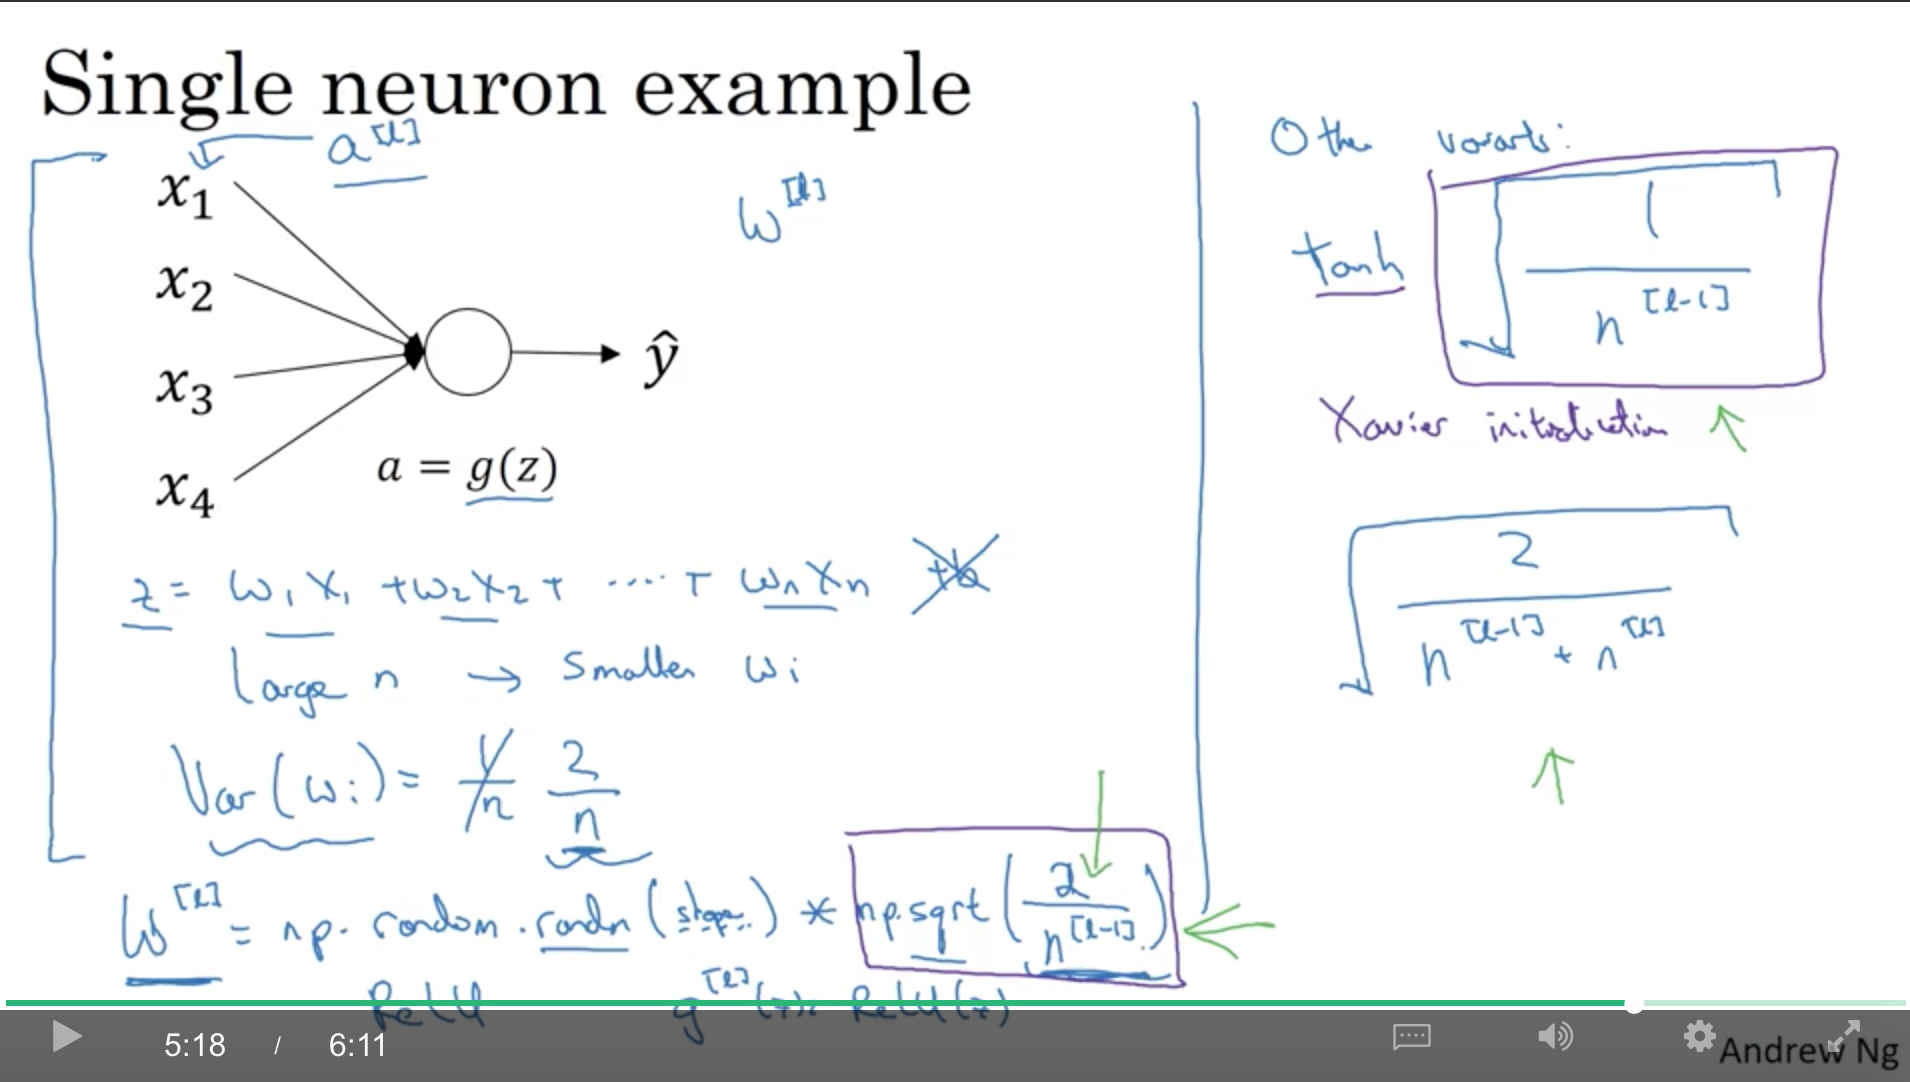 Single neuron example
a^[l]
x₁
x₂
x₃
x₄
ŷ
w^[l]
a = g(z)
z = w₁x₁ + w₂x₂ + ..... + wₙxₙ +b
Large n → Smaller wᵢ
Var(wᵢ) = 1/n 2/n
W^[l] = np.random.randn(shape) * np.sqrt(2/n^[l-1])
ReLU g^[l](z) = ReLU(z)
Other variants:
tanh √(1/n^[l-1])
Xavier initialization
√(2/(n^[l-1] + n^[l]))
5:18 / 6:11
Andrew Ng